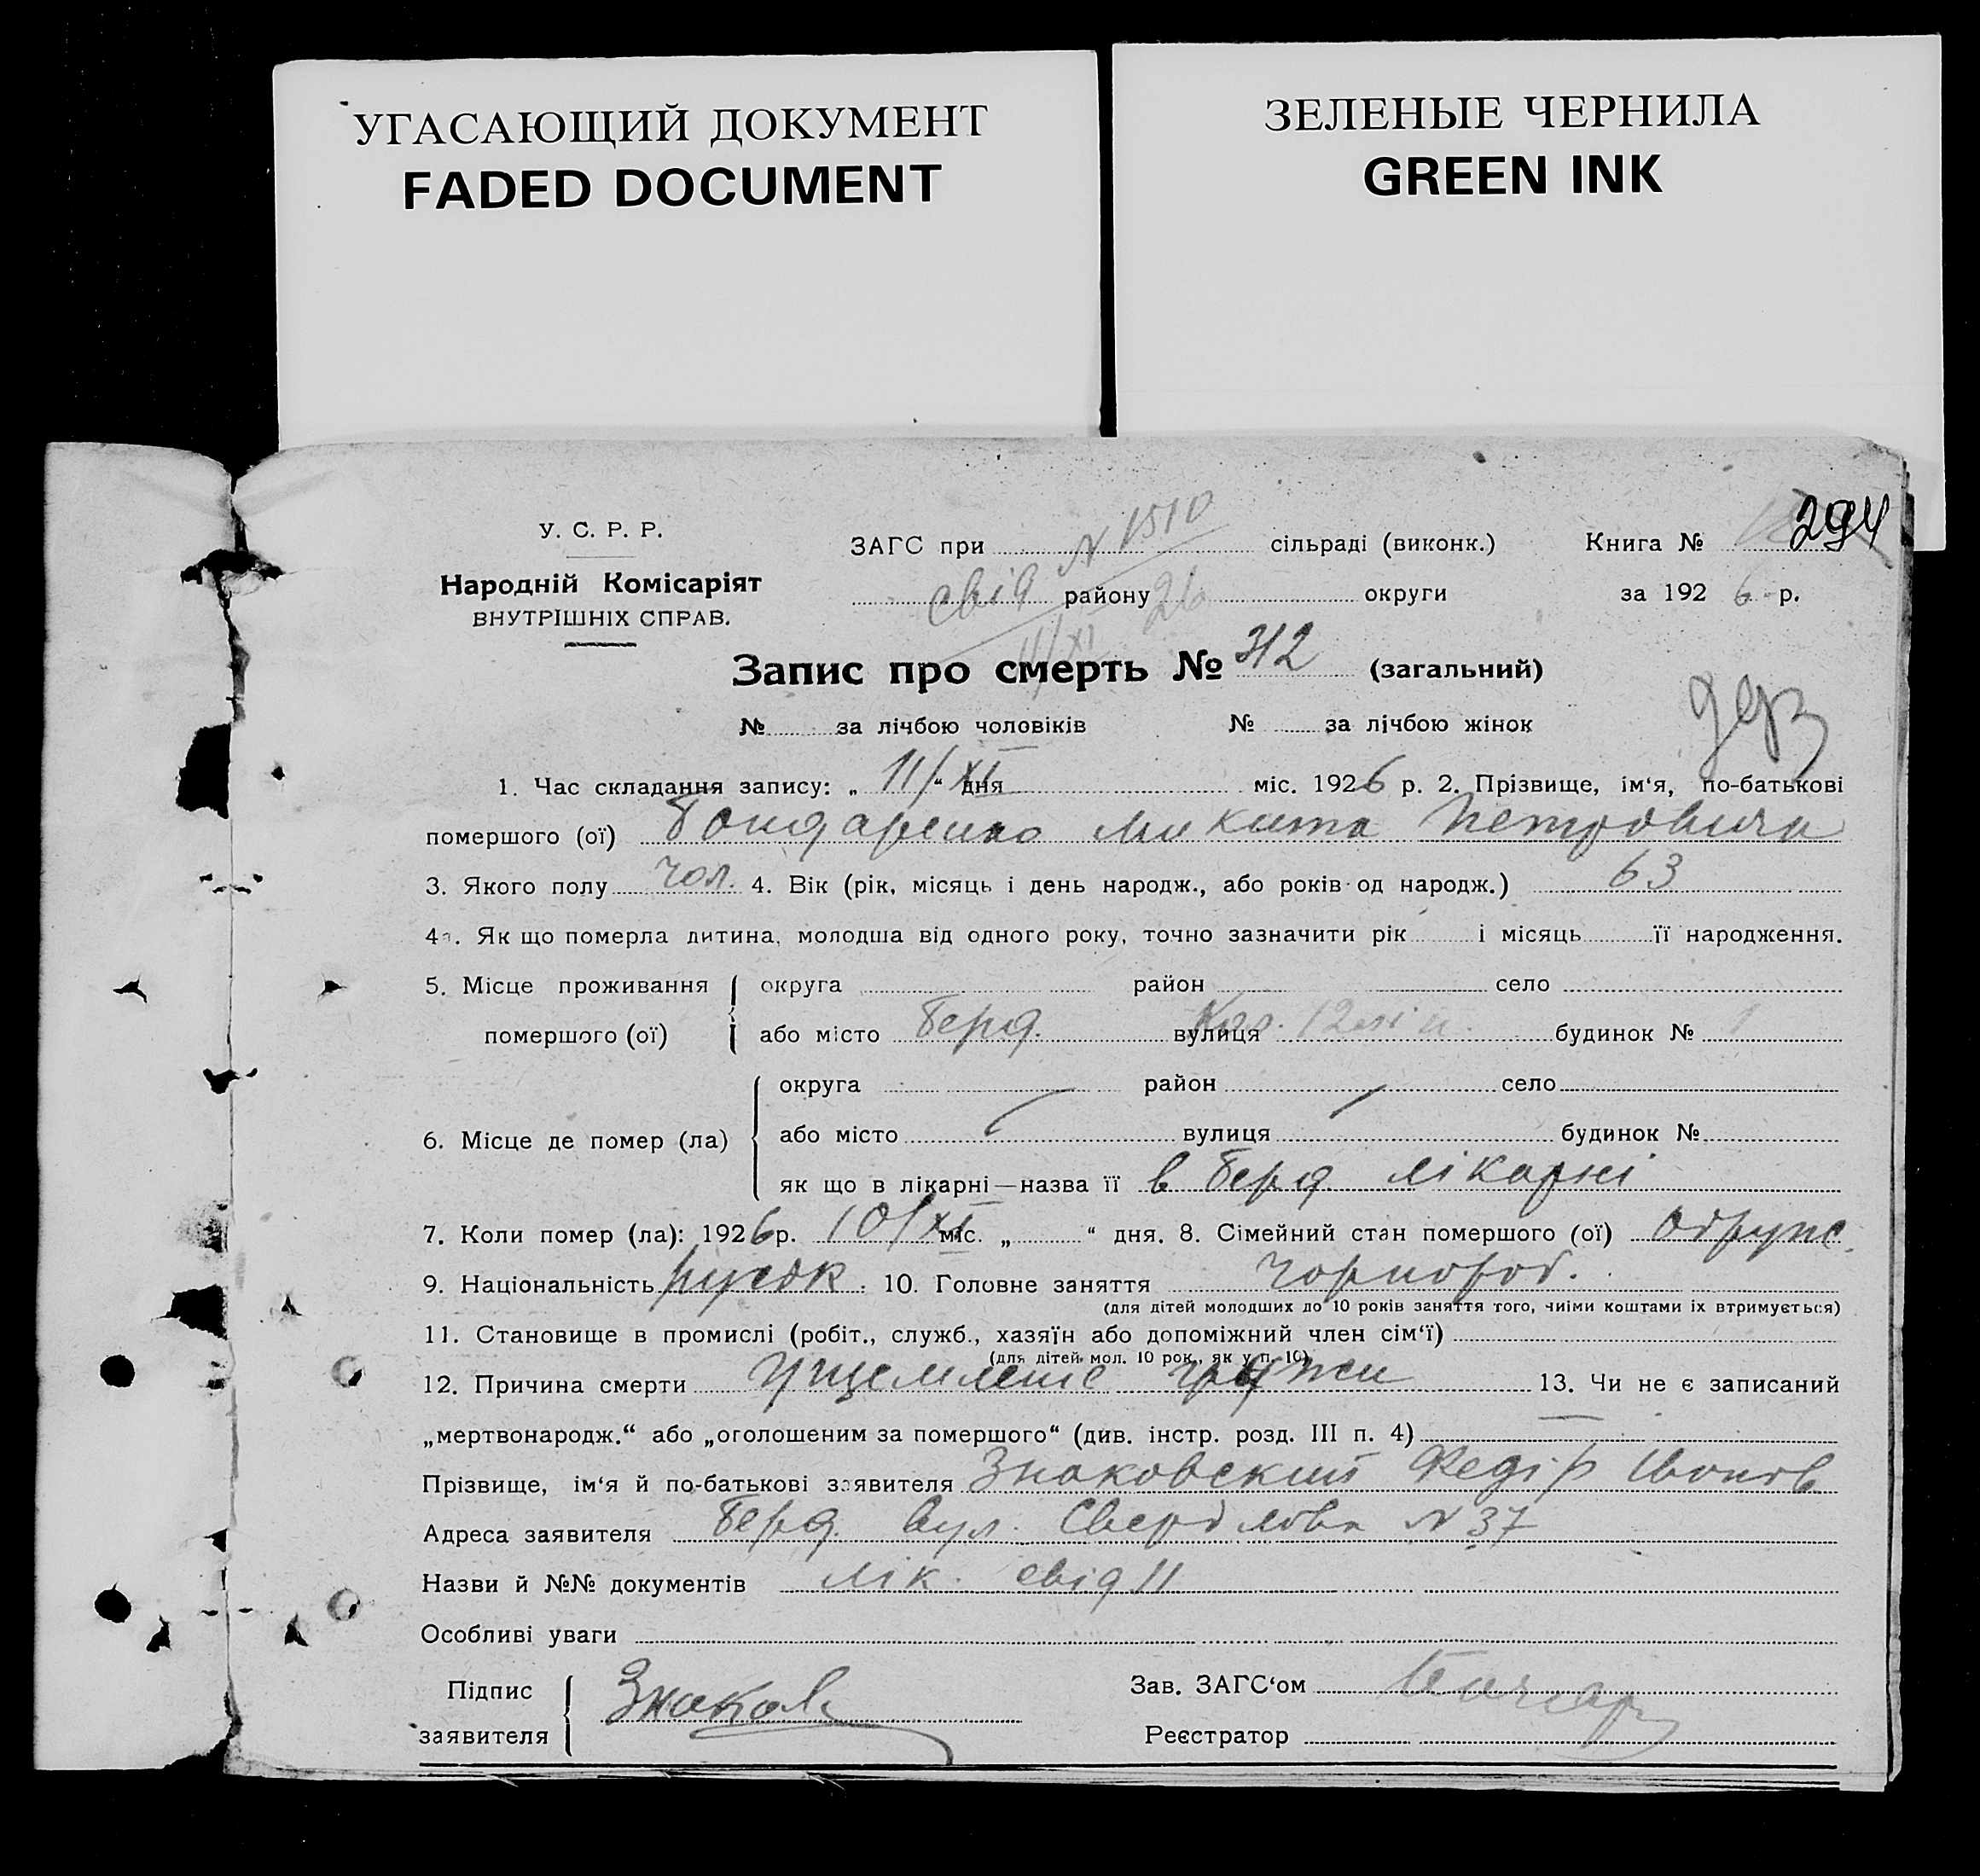 УГАСАЮЩИЙ ДОКУМЕНТ
FADED DOCUMENT
ЗЕЛЕНЫЕ ЧЕРНИЛА
GREEN INK
У. С. Р. Р.
Народній Комісаріят
ВНУТРІШНІХ СПРАВ.
ЗАГС при N 1510 сільраді (виконк.) Книга № 294
свід району 26 округи за 1926 р.
11/XI
Запис про смерть № 312 (загальний)
№ за лічбою чоловіків № за лічбою жінок
1. Час складання запису: „ 11/XI “ дня міс. 1926 р. 2. Прізвище, ім‘я, по-батькові
помершого (ої) Бондаренко Микита Петрович
3. Якого полу чол. 4. Вік (рік, місяць і день народж., або років од народж.) 63
4а. Як що померла дитина, молодша від одного року, точно зазначити рік і місяць її народження.
5. Місце проживання помершого (ої) округа район село
або місто Берд. вулиця 12 лін. будинок № 1
6. Місце де помер (ла) округа район село
або місто вулиця будинок №
як що в лікарні—назва її в Берд лікарні
7. Коли помер (ла): 1926 р. 10/XI міс. „ “ дня. 8. Сімейний стан помершого (ої) одруж.
9. Національність руськ. 10. Головне заняття чорнороб.
(для дітей молодших до 10 років заняття того, чиїми коштами їх втримується)
11. Становище в промислі (робіт., служб., хазяїн або допоміжний член сім‘ї)
(для дітей мол. 10 рок., як у п. 10)
12. Причина смерти Ущемление грыжи 13. Чи не є записаний
„мертвонародж.“ або „оголошеним за помершого“ (див. інстр. розд. III п. 4) —
Прізвище, ім‘я й по-батькові заявителя Знаковский Федір Іванов
Адреса заявителя Берд. вул. Свердлова N 37
Назви й №№ документів лік. свід 11
Особливі уваги
Підпис заявителя Знаков
Зав. ЗАГС‘ом
Реєстратор